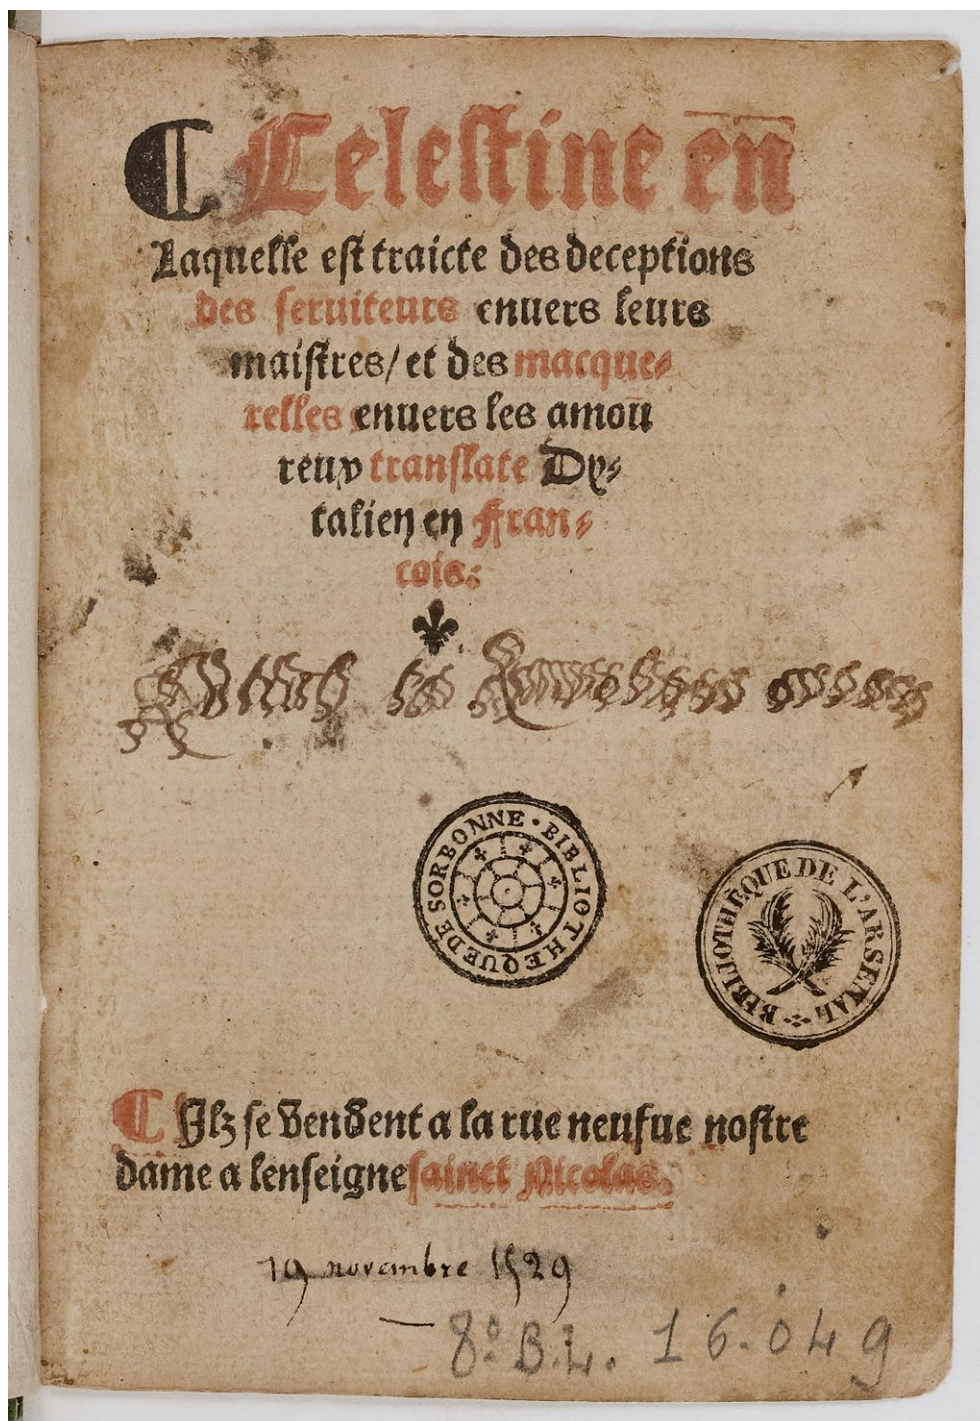 ¶ Celestine en̄
Laquelle est traicte des deceptions
des seruiteurs enuers leurs
maistres/ et des macque-
relles enuers les amou
reux translate Dy-
talien en Fran-
cois.
BIBLIOTHEQUE DE SORBONNE
BIBLIOTHÈQUE DE L'ARSENAL
¶ Ilz se vendent a la rue neufue nostre
dame a lenseigne sainct Nicolas.
19 novembre 1529
8° B.L. 16.049